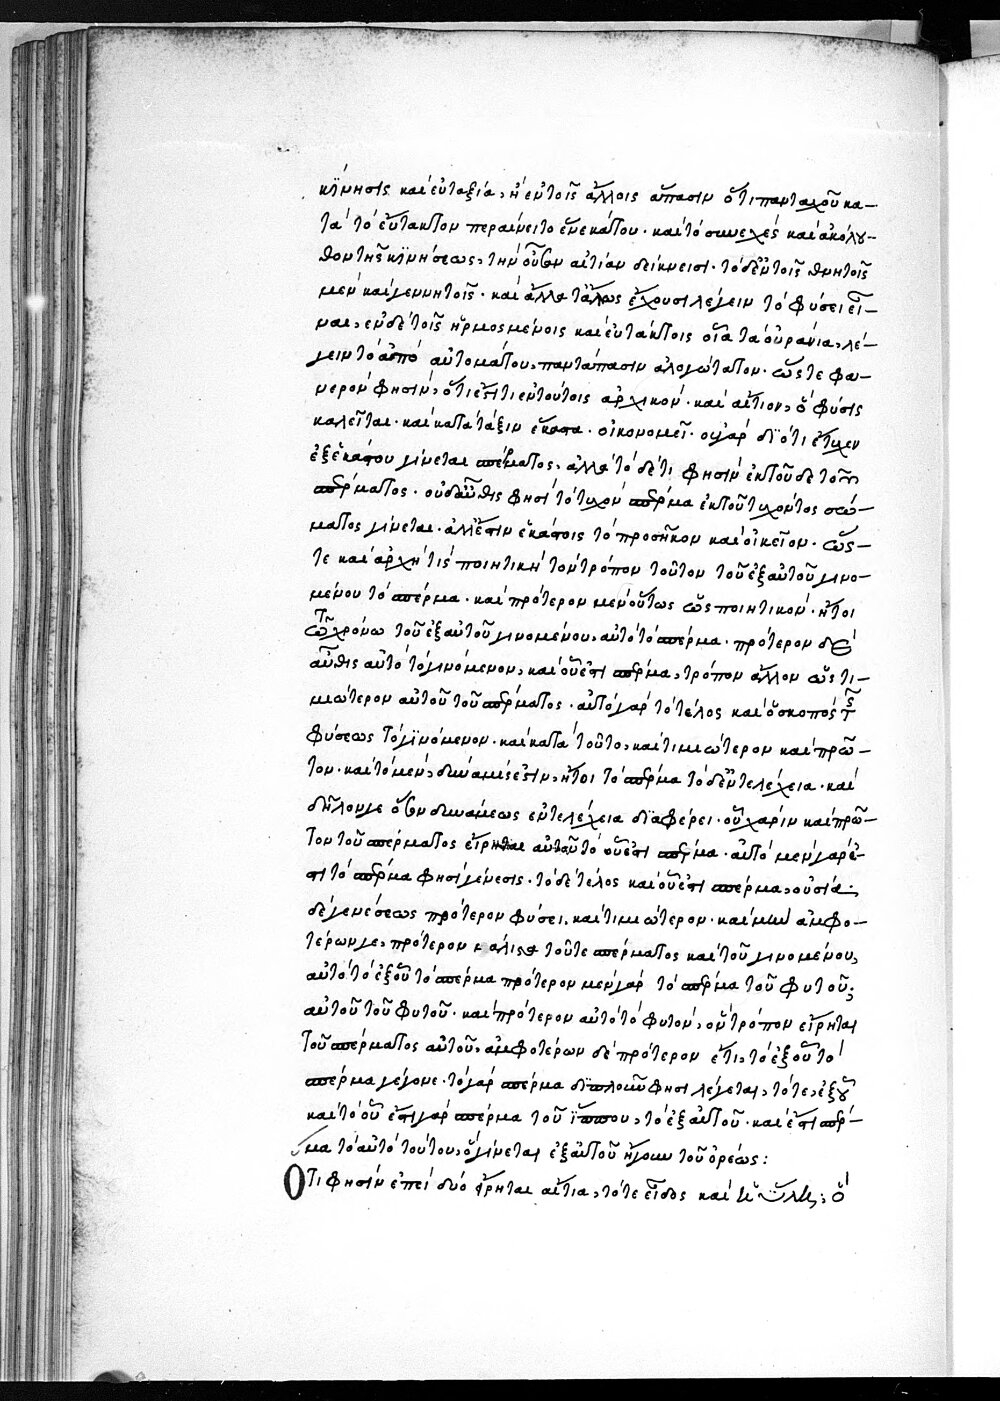 κίνησις καὶ εὐταξία, ἢ ἐν τοῖς ἄλλοις ἅπασιν ὅτι πανταχοῦ κα-
τὰ τὸ εὔτακτον περαίνει τὸ ἕνεκά του· καὶ τὸ συνεχὲς καὶ ἀκόλου-
θον τῆς κινήσεως, τὴν οὗ ἕνεκα αἰτίαν δείκνυσι· τὸ δ' ἐν τοῖς θνητοῖς
μὲν καὶ γεννητοῖς· καὶ ἄλλοτ' ἄλλως ἔχουσι λέγειν τὸ φύσει εἶ-
ναι, ἐν δὲ τοῖς ἡρμοσμένοις καὶ εὐτάκτοις οἷα τὰ οὐράνια, λέ-
γειν τὸ ἀπὸ αὐτομάτου, παντάπασιν ἀλογώτατον· ὥστε φα-
νερὸν φησὶν, ὅτι ἔστι τι ἐν τούτοις ἀρχικὸν· καὶ αἴτιον, ὃ φύσις
καλεῖται· καὶ κατὰ τάξιν ἕκαστα· οἰκονομεῖ· οὐ γὰρ δὴ ὅτι ἔτυχεν
ἐξ ἑκάστου γίνεται σπέρματος, ἀλλὰ τόδε τί φησὶν ἐκ τοῦδε τοῦ
σπέρματος· οὐδ' αὖθις φησὶ τὸ τυχὸν σπέρμα ἐκ τοῦ τυχόντος σώ-
ματος γίνεται· ἀλλ' ἔστιν ἑκάστοις τὸ προσῆκον καὶ οἰκεῖον· ὥσ-
τε καὶ ἀρχή τις ποιητικὴ τὸν τρόπον τοῦτον τοῦ ἐξ αὐτοῦ γινο-
μένου τὸ σπέρμα· καὶ πρότερον μὲν οὕτως ὡς ποιητικόν· ἤτοι
τῷ χρόνω τοῦ ἐξ αὐτοῦ γινομένου, αὐτὸ τὸ σπέρμα· πρότερον δὲ
αὖθις αὐτὸ τὸ γινόμενον, καὶ οὗ ἐστὶ σπέρμα, τρόπον ἄλλον ὥς τι-
μιώτερον αὐτοῦ τοῦ σπέρματος· αὐτὸ γὰρ τὸ τέλος καὶ ὁ σκοπὸς τῆς
φύσεως τὸ γινόμενον· καὶ κατὰ τοῦτο, καὶ τιμιώτερον καὶ πρῶ-
τον· καὶ τὸ μὲν, δυνάμει ἐστὶν, ἤτοι τὸ σπέρμα τὸ δ' ἐντελέχεια· καὶ
δῆλον γε ὅσον δυνάμεως ἐντελέχεια διαφέρει· οὗ χάριν καὶ πρῶ-
τον τοῦ σπέρματος εἴρηται αὐτοῦ τὸ οὗ ἐστὶ σπέρμα· αὐτὸ μὲν γὰρ ἐ-
στὶ τὸ σπέρμα φησὶ γένεσις· τὸ δὲ τέλος καὶ οὗ ἐστὶ σπέρμα, οὐσία·
δὲ γενέσεως πρότερον φύσει, καὶ τιμιώτερον· καὶ μὴν ἀμφο-
τέρων γε, πρότερον μάλιστα τοῦ τε σπέρματος καὶ τοῦ γινομένου,
αὐτὸ τὸ ἐξ οὗ τὸ σπέρμα πρότερον μὲν γὰρ τὸ σπέρμα τοῦ φυτοῦ,
αὐτοῦ τοῦ φυτοῦ· καὶ πρότερον αὐτὸ τὸ φυτὸν, ὃν τρόπον εἴρηται
τοῦ σπέρματος αὐτοῦ, ἀμφοτέρων δὲ πρότερον ἔτι, τὸ ἐξ οὗ τὸ
σπέρμα γέγονε· τὸ γὰρ σπέρμα διπλοῦν φησὶ λέγεται, τό τε, ἐξ οὗ
καὶ τὸ οὗ ἔστι γὰρ σπέρμα τοῦ ἵππου, τὸ ἐξ αὐτοῦ· καὶ ἔστι σπέρ-
μα τὸ αὐτὸ τούτου, ὃ γίνεται ἐξ αὐτοῦ ἤγουν τοῦ ὀρέως:
Ὅτι φησὶν ἐπεὶ δύο εἴρηται αἴτια, τό τε εἶδος καὶ ἡ ὕλη, ὃ